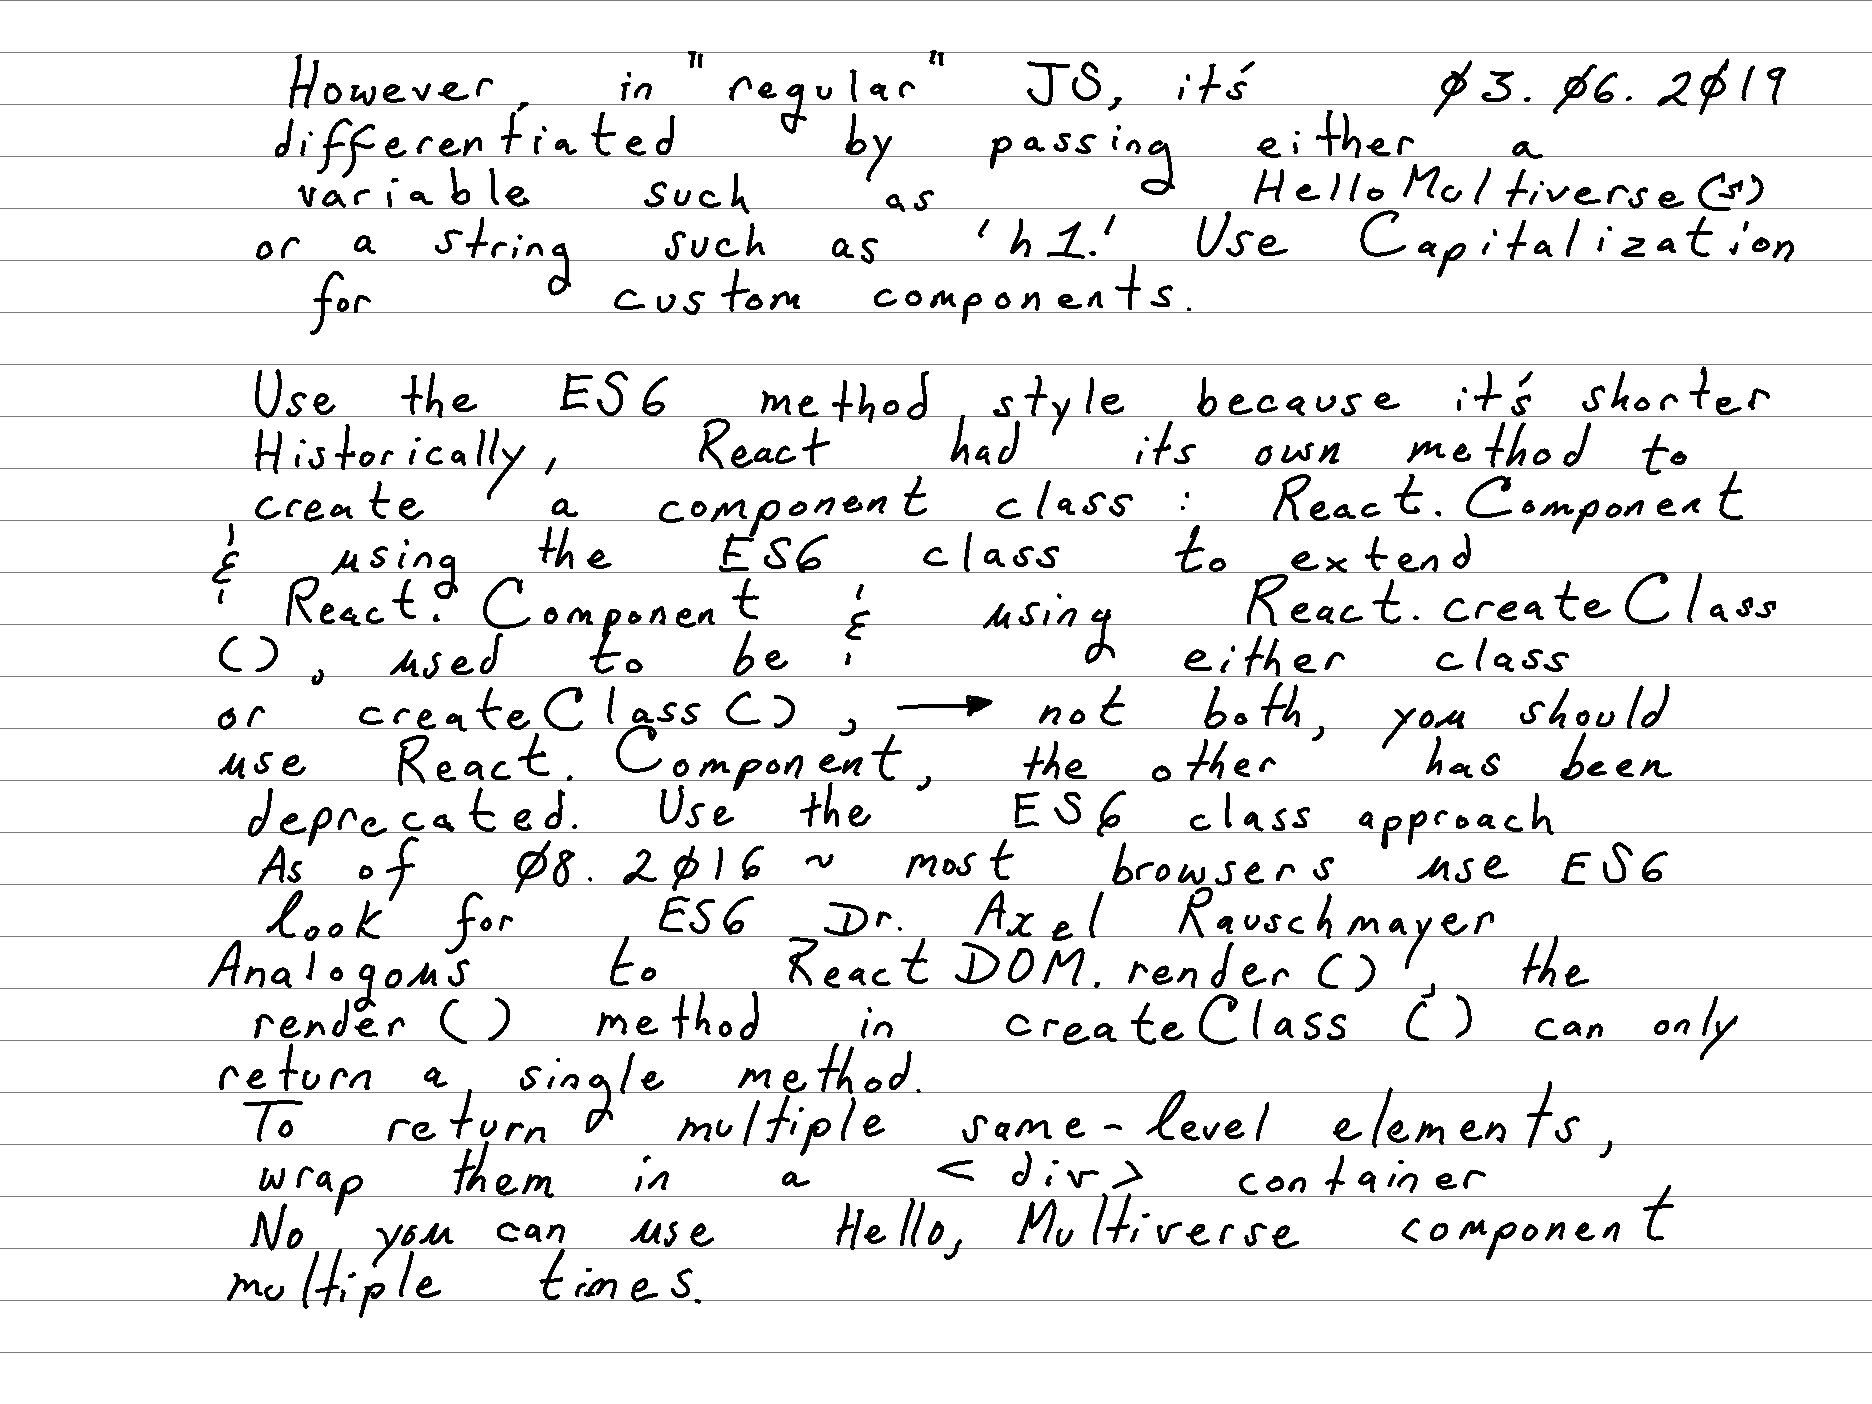 However, in "regular" JS, it's Ø3. Ø6. 2Ø19
differentiated by passing either a
variable such as HelloMultiverse(s)
or a string such as 'h1.' Use Capitalization
for custom components.
Use the ES6 method style because it's shorter
Historically, React had its own method to
create a component class : React. Component
& using the ES6 class to extend
React. Component & using React. createClass
(), used to be either class
or createClass(), → not both, you should
use React. Component, the other has been
deprecated. Use the ES6 class approach
As of Ø8. 2Ø16 ~ most browsers use ES6
look for ES6 Dr. Axel Rauschmayer
Analogous to ReactDOM. render(), the
render() method in createClass () can only
return a single method.
To return multiple same-level elements,
wrap them in a <div> container
No you can use Hello, Multiverse component
multiple times.